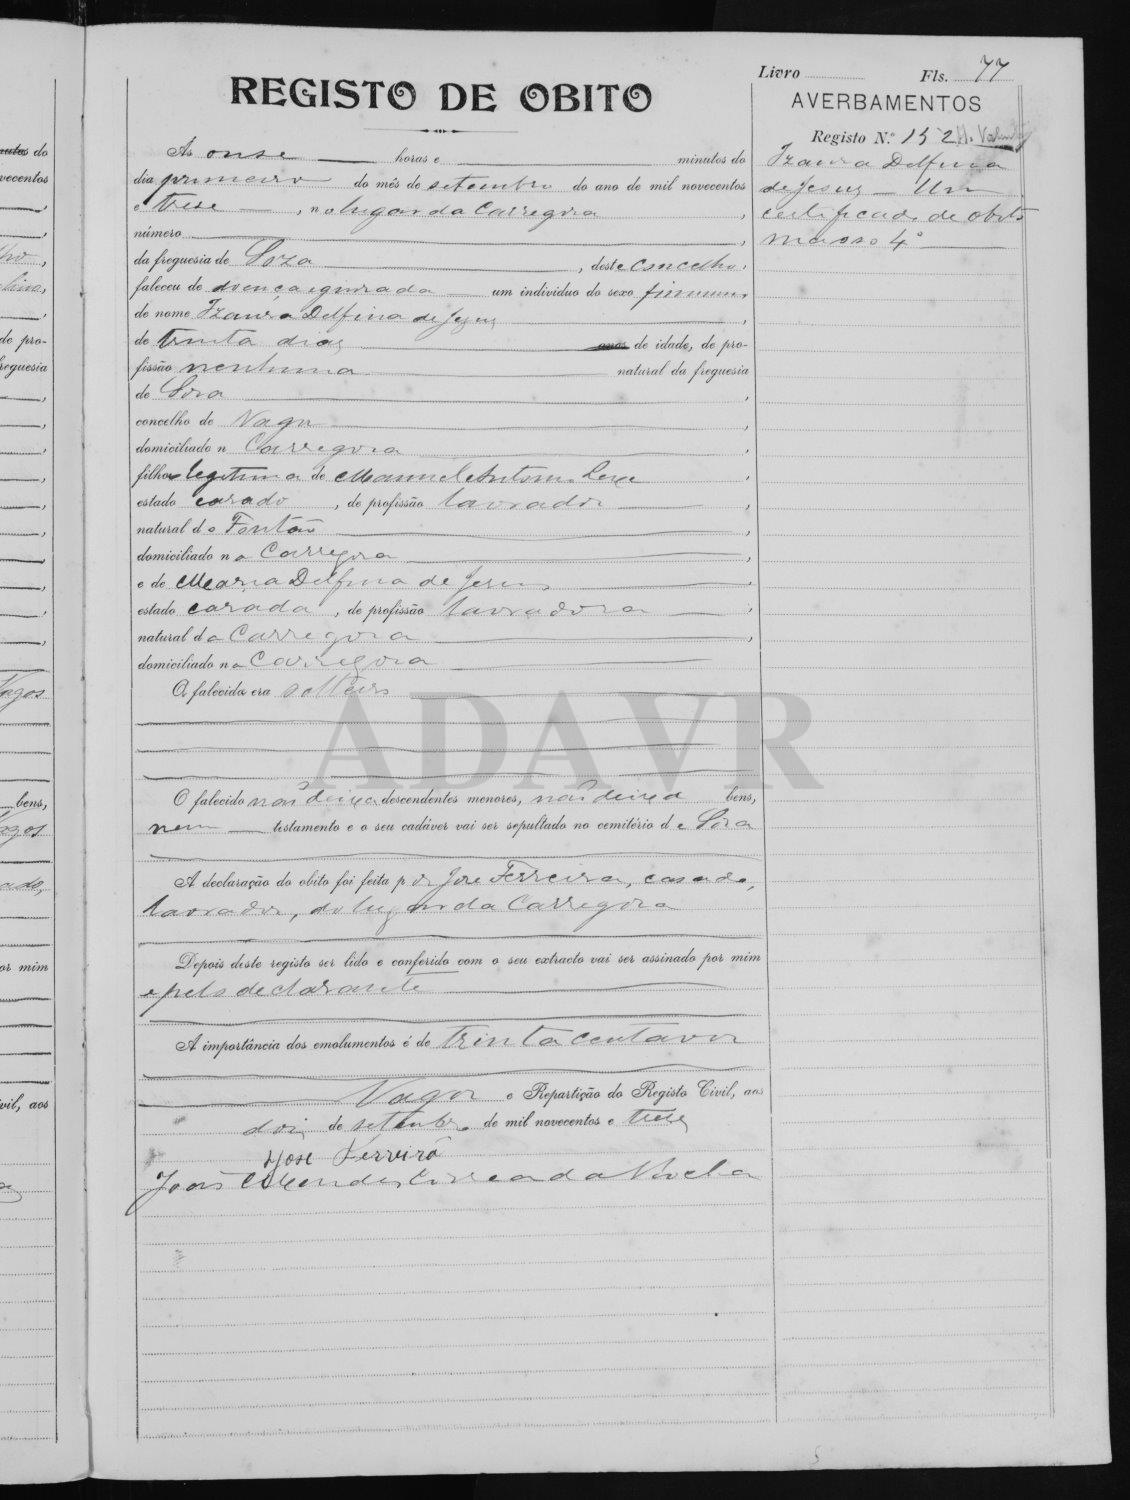 Livro Fls. 77
REGISTO DE OBITO
AVERBAMENTOS
Registo N.º 152
As onse horas e minutos do
dia primeiro do mês de setembro do ano de mil novecentos
e trese, no lugar da Carregosa,
número
da freguesia de Soza, deste concelho,
faleceu de doença ignorada um individuo do sexo feminino
de nome Izaura Delfina de Jesus
de trinta dias anos de idade, de pro-
fissão nenhuma natural da freguesia
de Soza,
concelho de Vagos,
domiciliado n Carregosa,
filho legitima de Manuel Antonio,
estado casado, de profissão lavrador,
natural de Fontão,
domiciliado na Carregosa,
e de Maria Delfina de Jesus,
estado casada, de profissão lavradora,
natural da Carregosa,
domiciliado na Carregosa
O falecido era solteiro
O falecido não deixa descendentes menores, não deixa bens,
nem testamento e o seu cadáver vai ser sepultado no cemitério de Soza
A declaração do obito foi feita por Jose Ferreira, casado,
lavrador, do lugar da Carregosa
Depois deste registo ser lido e conferido com o seu extracto vai ser assinado por mim
e pelo declarante
A importância dos emolumentos é de trinta centavos
Vagos e Repartição do Registo Civil, aos
dois de setembro de mil novecentos e trese
Jose Ferreira
João Mendes Correa da Rocha
Izaura Delfina
de Jesus — Um
certificado de obito
maço 4º
ADAVR